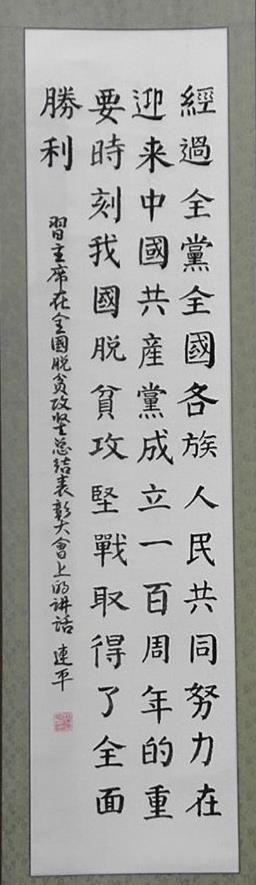 經過全黨全國各族人民共同努力在
迎来中國共産黨成立一百周年的重
要時刻我國脱貧攻堅戰取得了全面
勝利
習主席在全國脱贫攻坚总结表彰大會上的讲话 連平